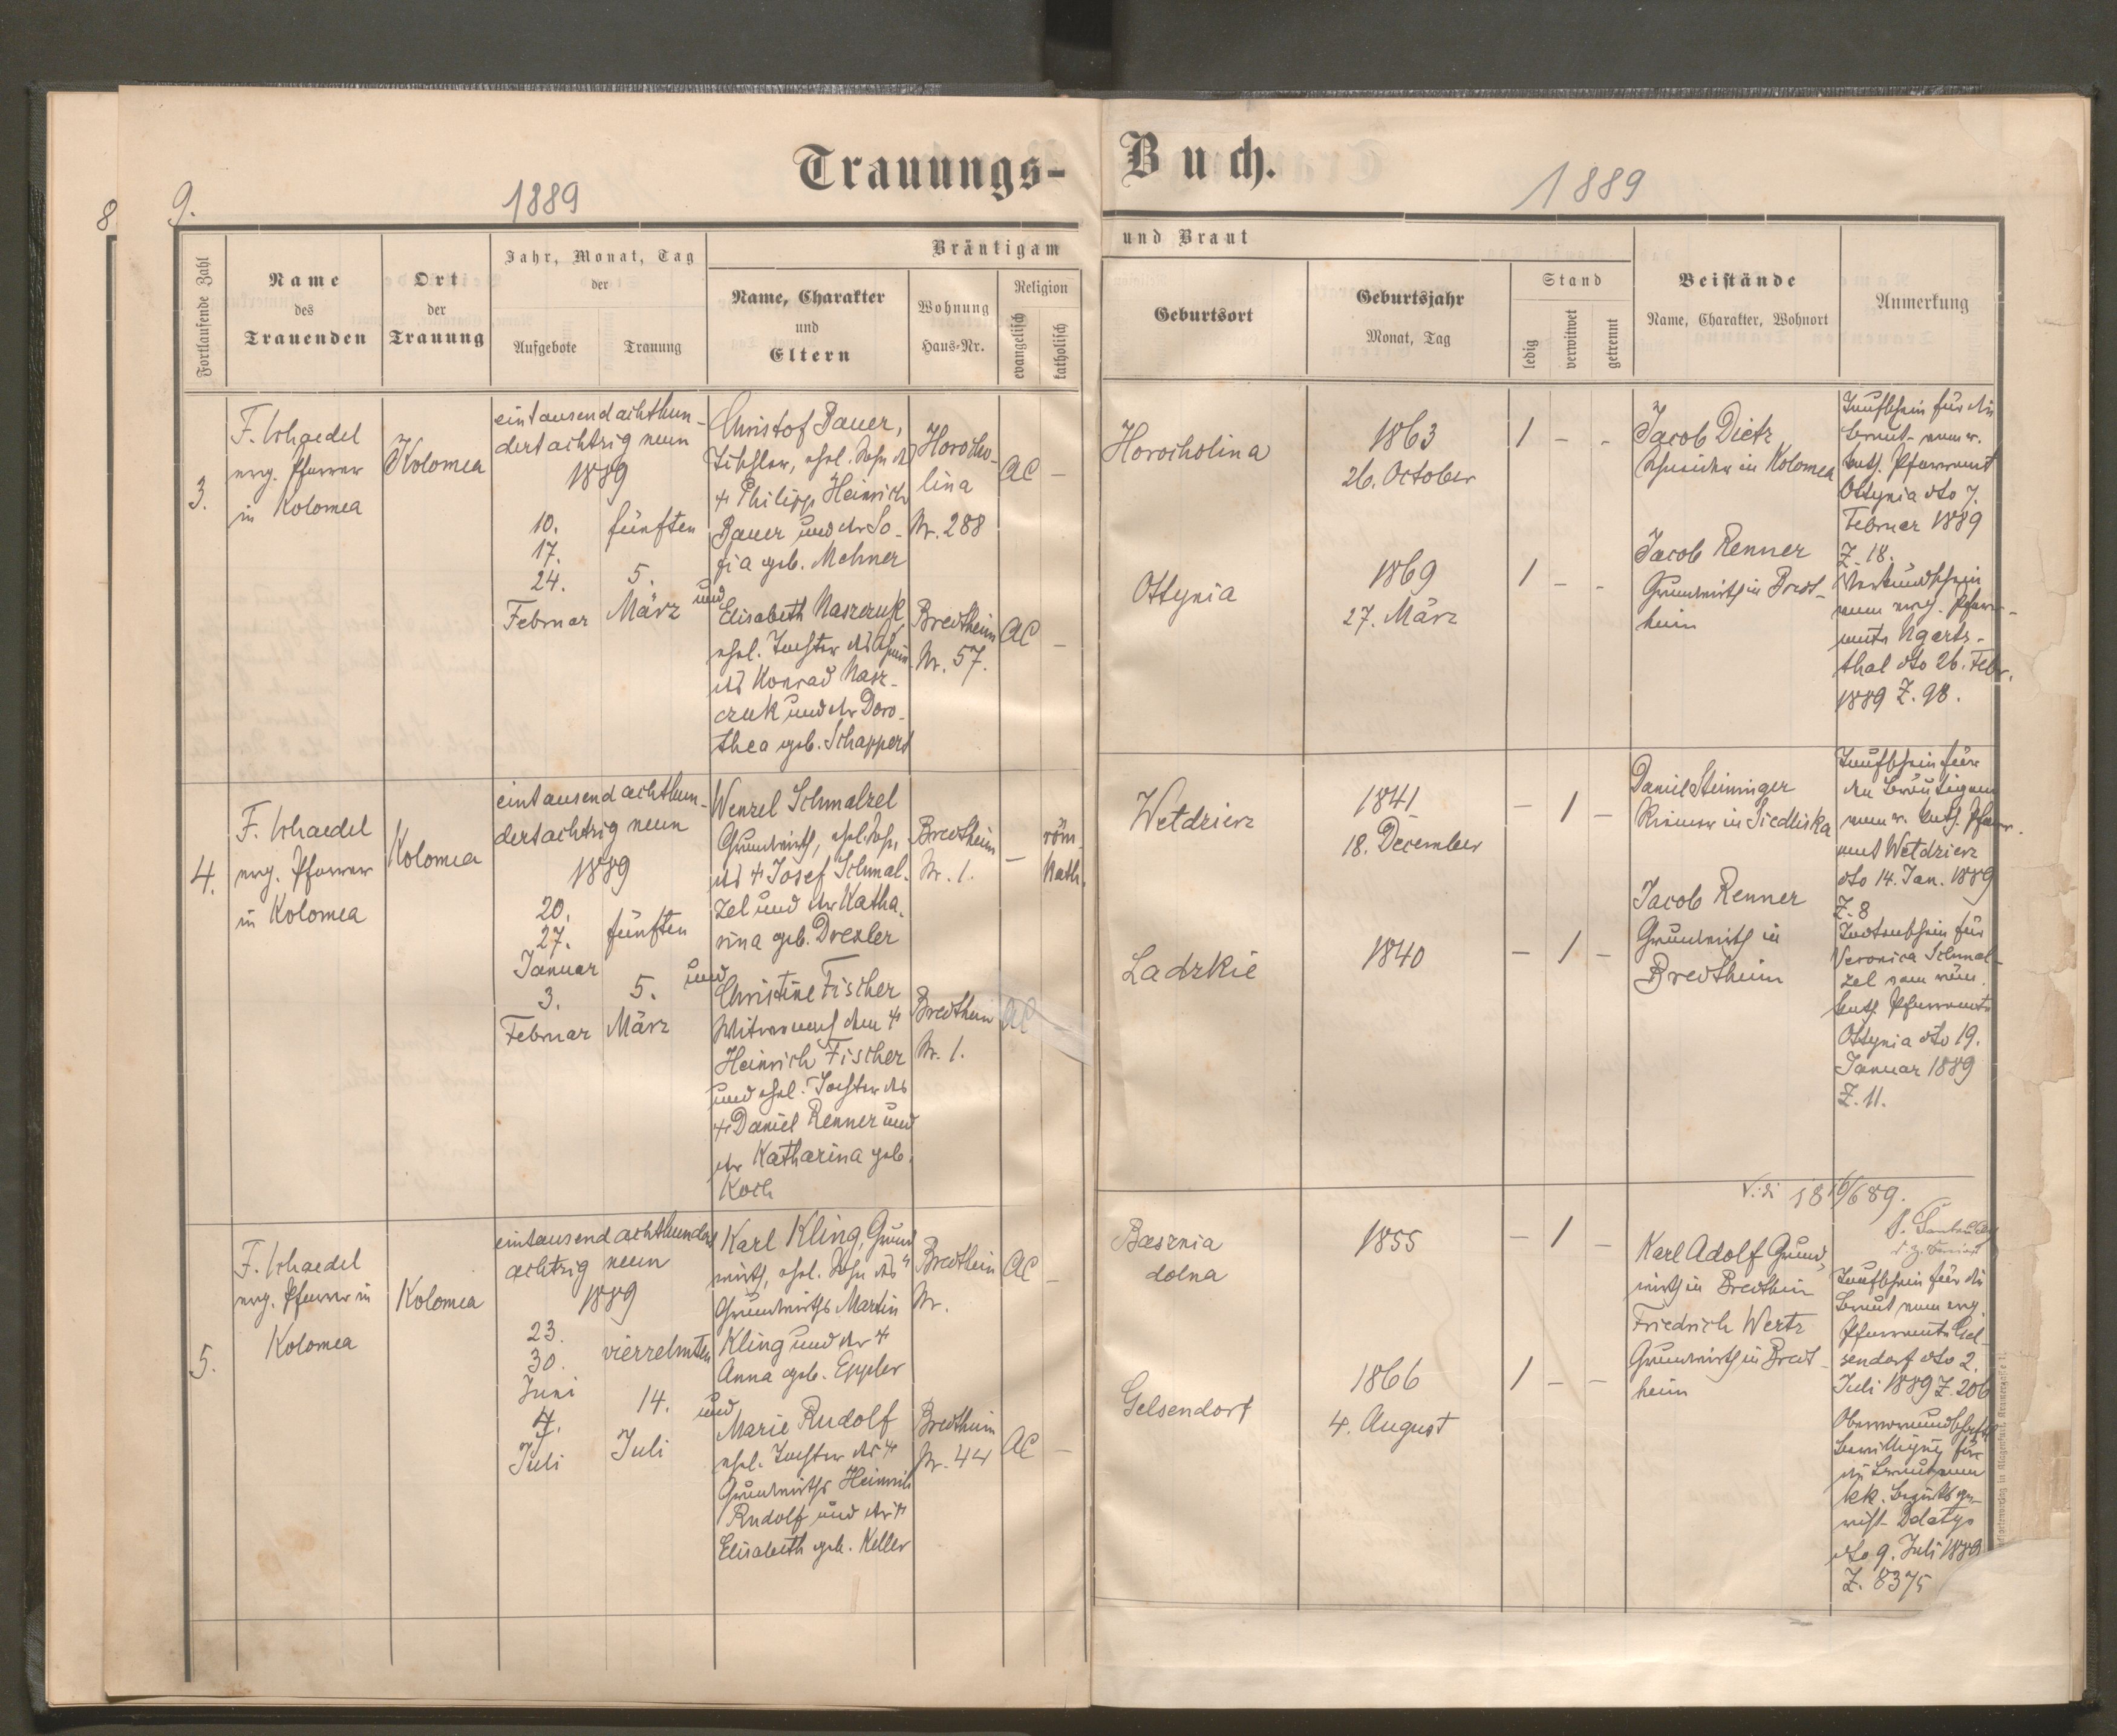 Trauungs-Buch.
8
9.
1889
1889
Fortlaufende Zahl
Name
des
Trauenden
Ort
der
Trauung
Jahr, Monat, Tag
der
Aufgebote
Trauung
Bräutigam
und Braut
Name, Charakter
und
Eltern
Wohnung
Haus-Nr.
Religion
evangelisch
katholisch
Geburtsort
Geburtsjahr
Monat, Tag
Stand
ledig
verwitwet
getrennt
Beistände
Name, Charakter, Wohnort
Anmerkung
3.
F. Schaedel
evg. Pfarrer
in Kolomea
Kolomea
eintausendachthun-
dertachtzig neun
1889
10.
17.
24.
Februar
fünften
5.
März
Christof Bauer,
Tischler, ehel. Sohn des
Philipp Heinrich
Bauer und der So-
fia geb. Mehner
und
Elisabeth Naszczuk
ehel. Tochter des
Konrad Nasz-
czuk und der Doro-
thea geb. Schappert
Horocho-
lina
Nr. 288
AC –
Bredtheim
Nr. 57.
AC –
Horocholina
1863
26. October
1 – -
Ottynia
1869
27. März
1 – -
Jacob Dietz
Schneider in Kolomea
Jacob Renner
Grundwirth in Bredt-
heim
Taufschein für die
Braut vom r.
kath. Pfarramt
Ottynia dto 7.
Februar 1889
Z. 18.
Verkündschein
vom evg. Pfarr-
amte Ugarts-
thal dto 26. Febr.
1889 Z. 98.
4.
F. Schaedel
evg. Pfarrer
in Kolomea
Kolomea
eintausendachthun-
dertachtzig neun
1889
20.
27.
Januar
3.
Februar
fünften
5.
März
Wenzel Schmalzel
Grundwirth, ehel. Sohn
des Josef Schmal-
zel und der Katha-
rina geb. Drexler
und
Christine Fischer
Witwe nach dem
Heinrich Fischer
und ehel. Tochter des
Daniel Renner und
der Katharina geb.
Koch
Bredtheim
Nr. 1.
– röm.
kath.
Bredtheim
Nr. 1.
AC
Wetdzierz
1841
18. December
– 1 –
Ladzkie
1840
– 1 –
Daniel Steininger
Riemer in Siedliska
Jacob Renner
Grundwirth in
Bredtheim
Taufschein für
den Bräutigam
vom r. kath. Pfarr-
amt Wetdzierz
dto 14. Jan. 1889
Z. 8
Todtenschein für
Veronica Schmal-
zel vom röm.
kath. Pfarramte
Ottynia dto 19.
Januar 1889
Z. 11.
Vidi 18 16/6 89.
5.
F. Schaedel
evg. Pfarrer in
Kolomea
Kolomea
eintausendachthundert
achtzig neun
1889
23.
30.
Juni
7.
Juli
vierzehnten
14.
Juli
Karl Kling, Grund
wirth, ehel. Sohn des
Grundwirths Martin
Kling und der
Anna geb. Eppler
und
Marie Rudolf
ehel. Tochter des
Grundwirths Heinrich
Rudolf und der
Elisabeth geb. Keller
Bredtheim
Nr.
AC –
Bredtheim
Nr. 44
AC –
Basznia
dolna
1855
– 1 –
Gelsendorf
1866
4. August
1 – –
Karl Adolf Grund
wirth in Bredtheim
Friedrich Wertz
Grundwirth in Bredt-
heim
Taufschein für die
Braut vom evg.
Pfarramte Gel-
sendorf dto 2.
Juli 1889 Z. 206
Obervormundschaftl.
Bewilligung für
die Braut vom
kk. Bezirksge-
richt Delatyn
dto 9. Juli 1889
Z. 8375